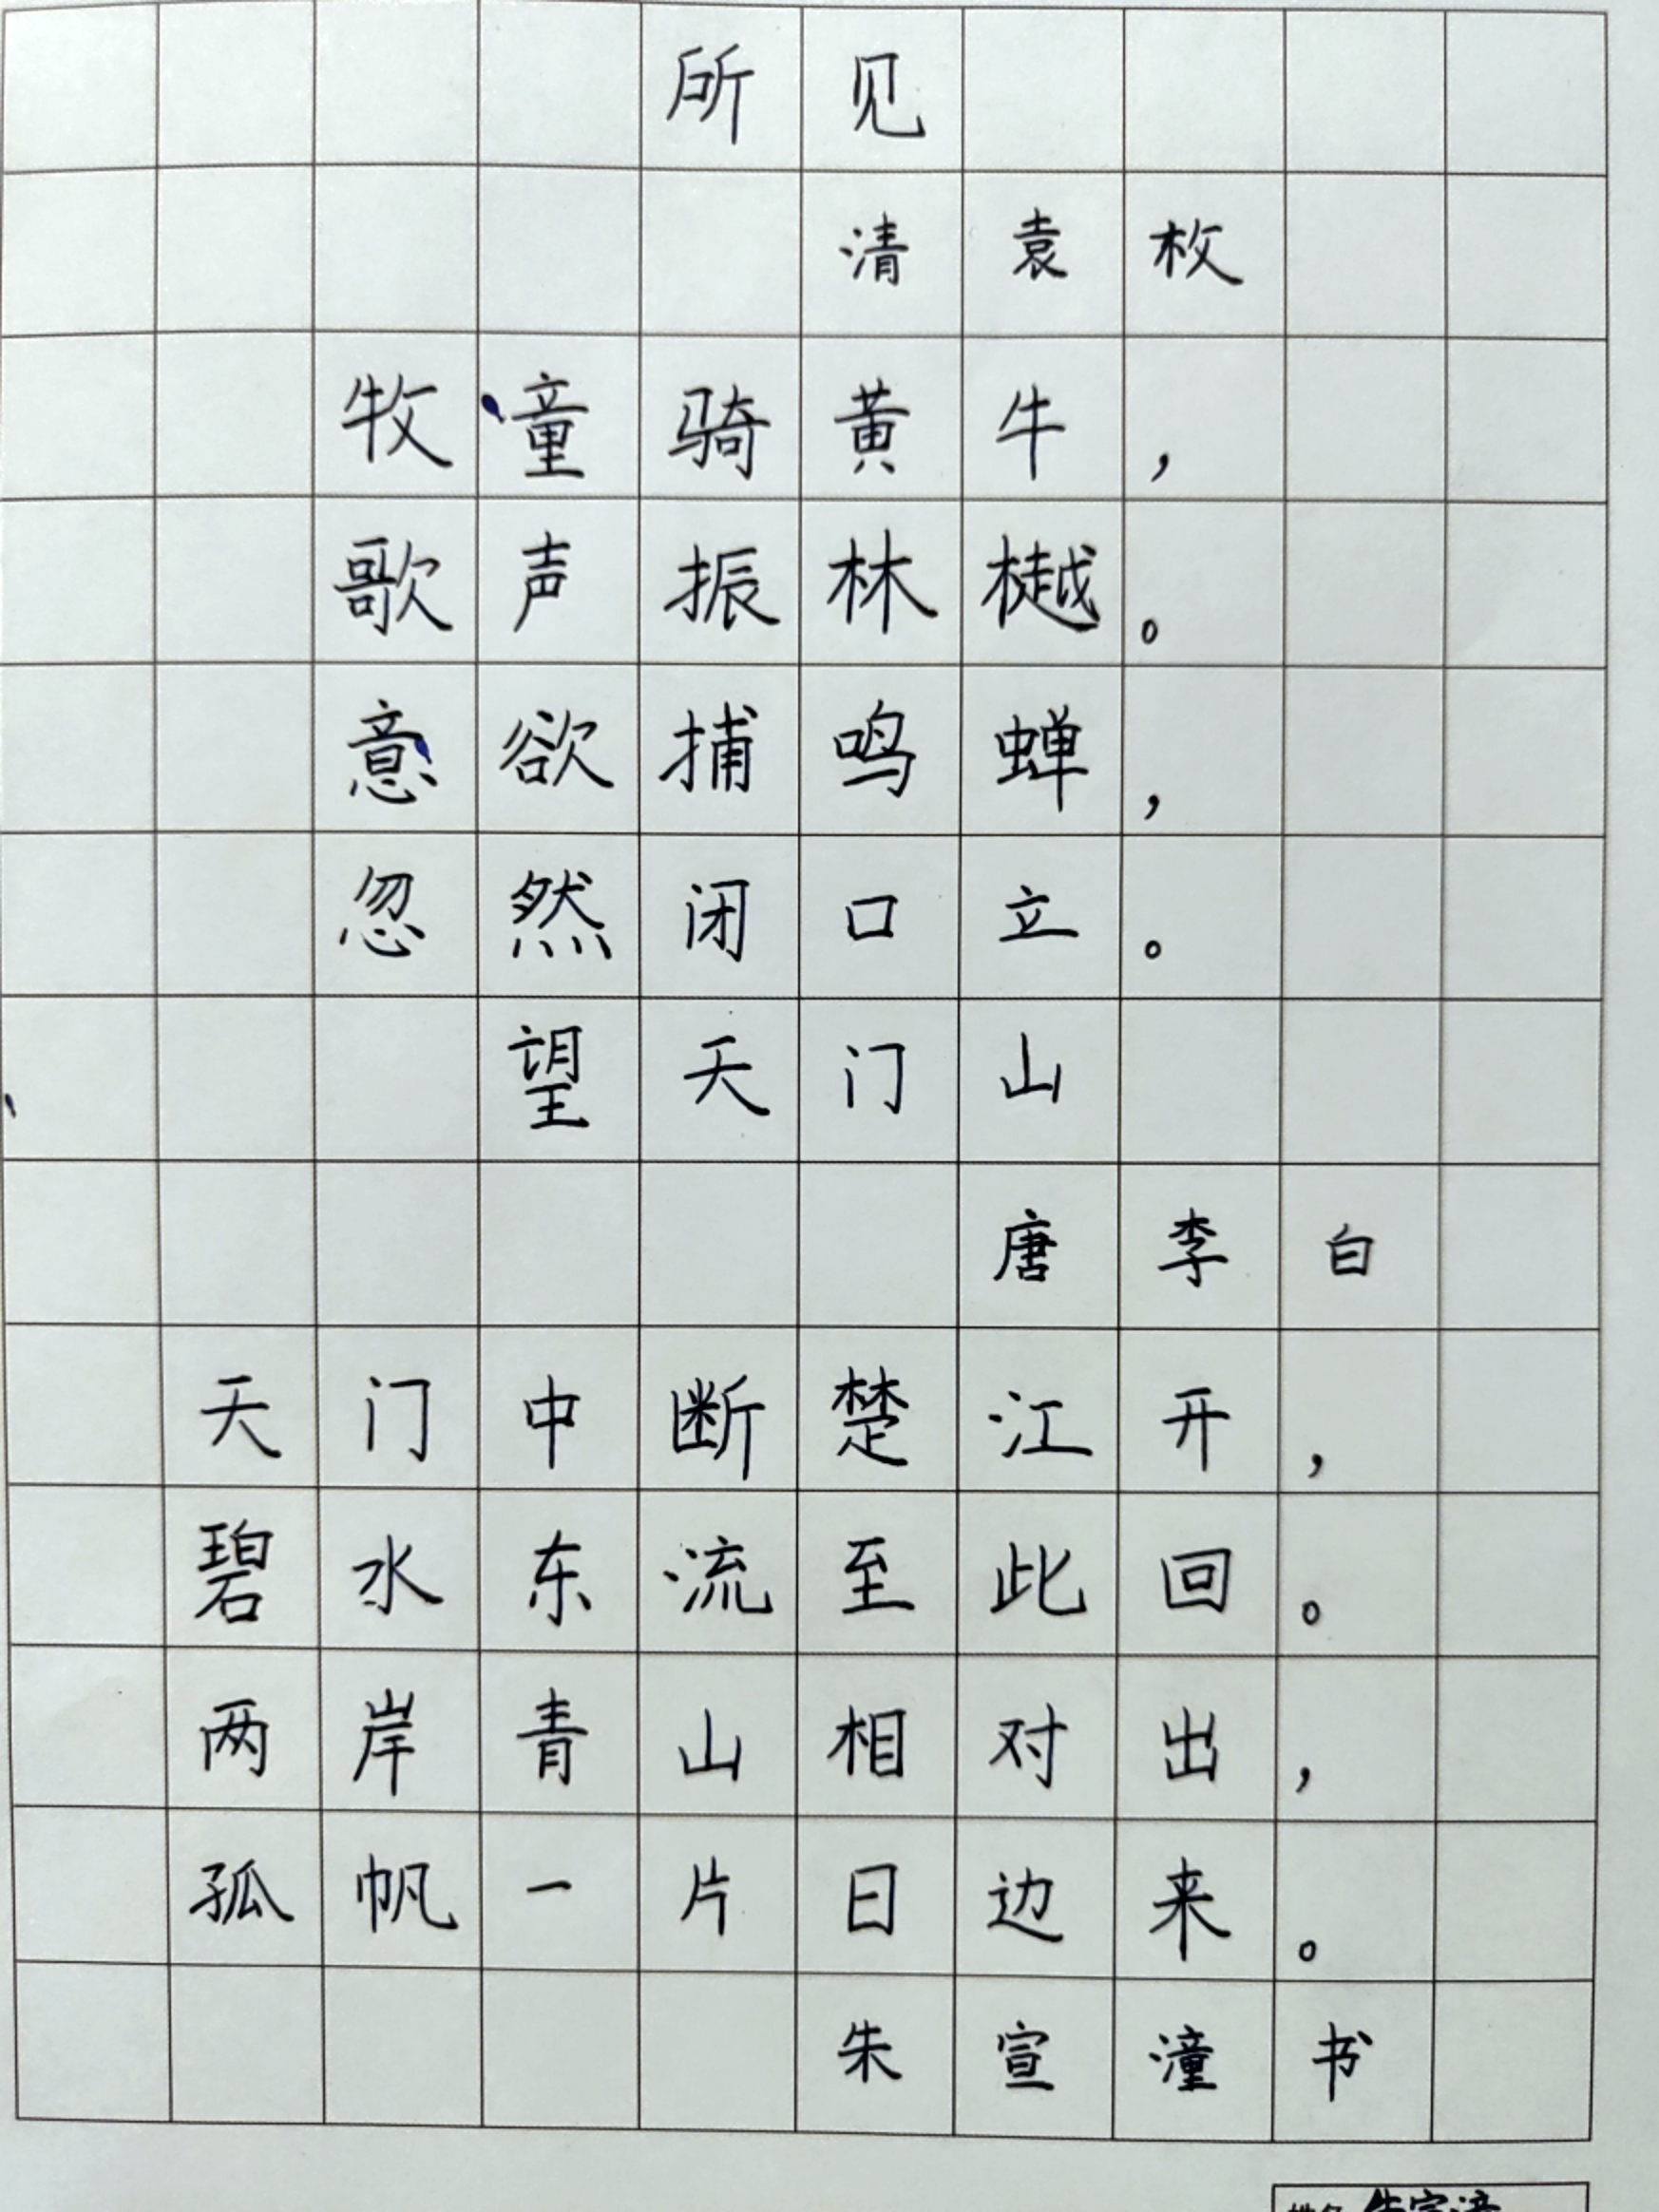 所见
清 袁枚
牧童骑黄牛，
歌声振林樾。
意欲捕鸣蝉，
忽然闭口立。
望天门山
唐 李白
天门中断楚江开，
碧水东流至此回。
两岸青山相对出，
孤帆一片日边来。
朱宣潼书